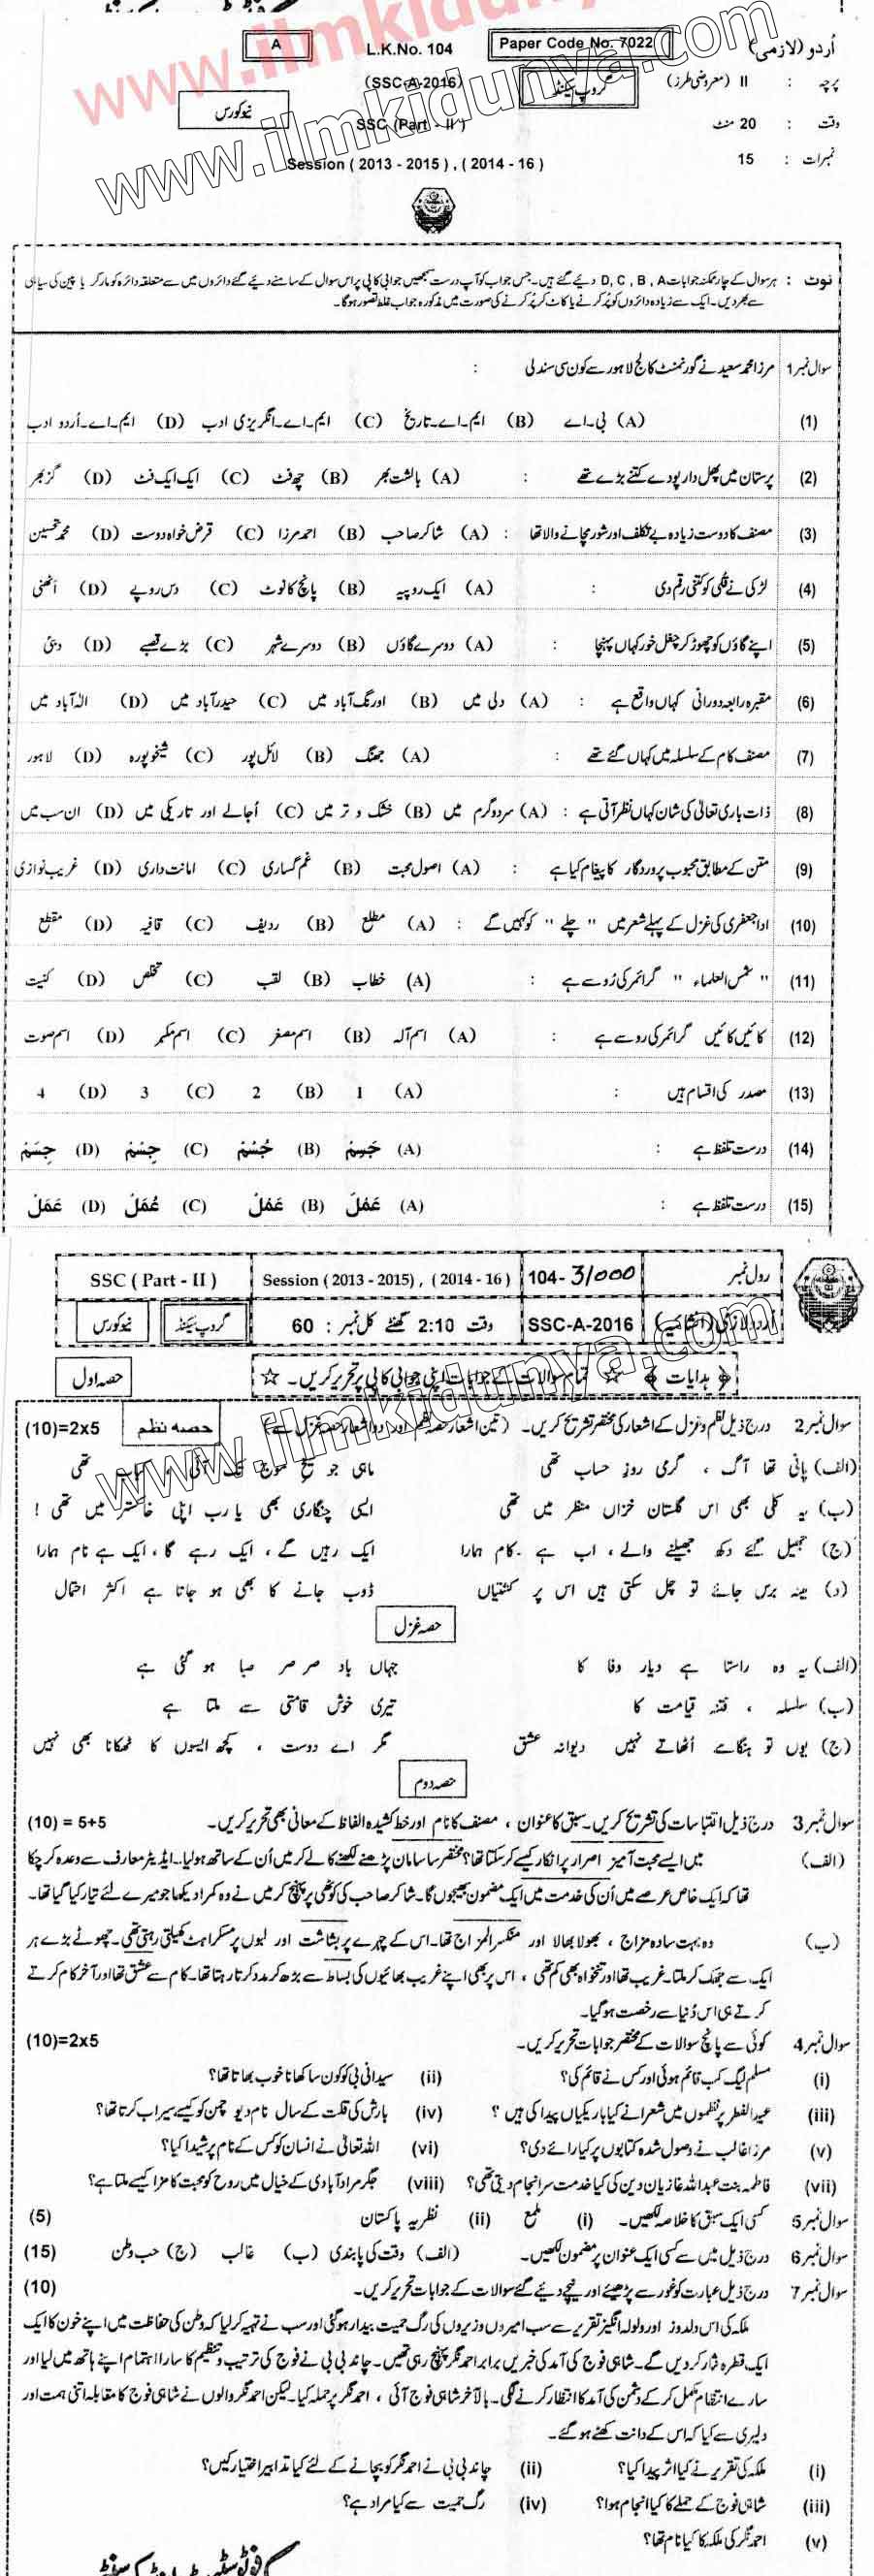 www.ilmkidunya.com
اُردو (لازمی) Paper Code No. 7022 L.K.No. 104 A
پرچہ : II (معروضی طرز) گروپ سیکنڈ (SSC-A-2016)
نیو کورس
وقت : 20 منٹ SSC (Part - II)
نمبرات : 15 Session ( 2013 - 2015 ) , ( 2014 - 16 )
نوٹ : ہر سوال کے چار ممکنہ جوابات D, C , B , A دیئے گئے ہیں۔ جس جواب کو آپ درست سمجھیں جوابی کاپی پر اس سوال کے سامنے دیئے گئے دائروں میں سے متعلقہ دائرہ کو مارکر یا پین کی سیاہی
سے بھر دیں۔ ایک سے زیادہ دائروں کو پُر کرنے یا کاٹ کر پُر کرنے کی صورت میں مذکورہ جواب غلط تصور ہوگا۔
سوال نمبر 1 مرزا محمد سعید نے گورنمنٹ کالج لاہور سے کون سی سند لی :
(1) (A) بی۔اے (B) ایم۔اے۔تاریخ (C) ایم۔اے۔انگریزی ادب (D) ایم۔اے۔اُردو ادب
(2) پرستان میں پھل دار پودے کتنے بڑے تھے : (A) بالشت بھر (B) چھ فٹ (C) ایک ایک فٹ (D) گز بھر
(3) مصنف کا دوست زیادہ بے تکلف اور شور مچانے والا تھا : (A) شاکر صاحب (B) احمد مرزا (C) قرض خواہ دوست (D) محمد تحسین
(4) لڑکی نے قلی کو کتنی رقم دی : (A) ایک روپیہ (B) پانچ کا نوٹ (C) دس روپے (D) اٹھنی
(5) اپنے گاؤں کو چھوڑ کر چغل خور کہاں پہنچا : (A) دوسرے گاؤں (B) دوسرے شہر (C) بڑے قصبے (D) دبئی
(6) مقبرہ رابعہ دورانی کہاں واقع ہے : (A) دلی میں (B) اورنگ آباد میں (C) حیدر آباد میں (D) الٰہ آباد میں
(7) مصنف کام کے سلسلہ میں کہاں گئے تھے : (A) جھنگ (B) لائل پور (C) شیخوپورہ (D) لاہور
(8) ذات باری تعالیٰ کی شان کہاں نظر آتی ہے : (A) سرد و گرم میں (B) خشک و تر میں (C) اُجالے اور تاریکی میں (D) ان سب میں
(9) متن کے مطابق محبوب پروردگار کا پیغام کیا ہے : (A) اصول محبت (B) غم گساری (C) امانت داری (D) غریب نوازی
(10) ادا جعفری کی غزل کے پہلے شعر میں " چلے " کو کہیں گے : (A) مطلع (B) ردیف (C) قافیہ (D) مقطع
(11) " شمس العلماء " گرائمر کی رُو سے ہے : (A) خطاب (B) لقب (C) تخلص (D) کنیت
(12) کائیں کائیں گرائمر کی رو سے ہے : (A) اسم آلہ (B) اسم مصغر (C) اسم مکبر (D) اسم صوت
(13) مصدر کی اقسام ہیں : (A) 1 (B) 2 (C) 3 (D) 4
(14) درست تلفظ ہے : (A) جَسِمْ (B) جُسْمْ (C) جِسْمْ (D) جِسَمْ
(15) درست تلفظ ہے : (A) عَمُلْ (B) عَمْلْ (C) عُمَلْ (D) عَمَلْ
رول نمبر 104-31000 Session ( 2013 - 2015) , ( 2014 - 16 ) SSC ( Part - II )
اردو لازمی (انشائیہ) SSC-A-2016 وقت 2:10 گھنٹے کل نمبر : 60 گروپ سیکنڈ نیو کورس
﴿ ہدایات ﴾ ☆ تمام سوالات کے جوابات اپنی جوابی کاپی پر تحریر کریں۔ ☆ حصہ اول
سوال نمبر 2 درج ذیل نظم و غزل کے اشعار کی مختصر تشریح کریں۔ (تین اشعار حصہ نظم اور دو اشعار حصہ غزل سے) حصہ نظم (10)=2x5
(الف) پانی تھا آگ ، گرمی روزِ حساب تھی ماہی جو سیخ موج تک آئی کباب تھی
(ب) یہ کلی بھی اس گلستان خزاں منظر میں تھی ایسی چنگاری بھی یا رب اپنی خاکستر میں تھی !
(ج) جھیل گئے دکھ جھیلنے والے ، اب ہے کام ہمارا ایک رہیں گے ، ایک رہے گا ، ایک ہے نام ہمارا
(د) مینہ برس جائے تو چل سکتی ہیں اس پر کشتیاں ڈوب جانے کا بھی ہو جاتا ہے اکثر احتمال
حصہ غزل
(الف) یہ وہ راستا ہے دیار وفا کا جہاں باد صر صر صبا ہو گئی ہے
(ب) سلسلہ ، فتنہ قیامت کا تیری خوش قامتی سے ملتا ہے
(ج) یوں تو ہنگامے اُٹھاتے نہیں دیوانہ عشق مگر اے دوست ، کچھ ایسوں کا ٹھکانا بھی نہیں
حصہ دوم
سوال نمبر 3 درج ذیل اقتباسات کی تشریح کریں۔ سبق کا عنوان ، مصنف کا نام اور خط کشیدہ الفاظ کے معانی بھی تحریر کریں۔ (10) = 5+5
(الف) میں ایسے محبت آمیز اصرار پر انکار کیسے کر سکتا تھا؟ مختصر سا سامان پڑھنے لکھنے کا لے کر میں اُن کے ساتھ ہو لیا۔ ایڈیٹر معارف سے وعدہ کر چکا
تھا کہ ایک خاص عرصے میں اُن کی خدمت میں ایک مضمون بھیجوں گا۔ شاکر صاحب کی کوٹھی پر پہنچ کر میں نے وہ کمرا دیکھا جو میرے لئے تیار کیا گیا تھا۔
(ب) وہ بہت سادہ مزاج ، بھولا بھالا اور منکسر المزاج تھا۔ اس کے چہرے پر بشاشت اور لبوں پر مسکراہٹ کھیلتی رہتی تھی۔ چھوٹے بڑے ہر
ایک سے جھک کر ملتا۔ غریب تھا اور تنخواہ بھی کم تھی ، اس پر بھی اپنے غریب بھائیوں کی بساط سے بڑھ کر مدد کرتا رہتا تھا۔ کام سے عشق تھا اور آخر کام کرتے
کرتے ہی اس دُنیا سے رخصت ہو گیا۔
سوال نمبر 4 کوئی سے پانچ سوالات کے مختصر جوابات تحریر کریں۔ (10)=2x5
(i) مسلم لیگ کب قائم ہوئی اور کس نے قائم کی؟ (ii) سیدانی بی کو کون سا کھانا خوب بھاتا تھا؟
(iii) عید الفطر پر نظموں میں شعرا نے کیا باریکیاں پیدا کی ہیں ؟ (iv) بارش کی قلت کے سال نام دیو چمن کو کیسے سیراب کرتا تھا؟
(v) مرزا غالب نے وصول شدہ کتابوں پر کیا رائے دی؟ (vi) اللہ تعالیٰ نے انسان کو کس کے نام پر شیدا کیا؟
(vii) فاطمہ بنت عبداللہ غازیان دین کی کیا خدمت سرانجام دیتی تھی؟ (viii) جگر مراد آبادی کے خیال میں روح کو محبت کا مزا کیسے ملتا ہے؟
سوال نمبر 5 کسی ایک سبق کا خلاصہ لکھیں۔ (i) ملمع (ii) نظریہ پاکستان (5)
سوال نمبر 6 درج ذیل میں سے کسی ایک عنوان پر مضمون لکھیں۔ (الف) وقت کی پابندی (ب) غالب (ج) حب وطن (15)
سوال نمبر 7 درج ذیل عبارت کو غور سے پڑھیئے اور نیچے دیئے گئے سوالات کے جوابات تحریر کریں۔ (10)
ملکہ کی اس دلدوز اور ولولہ انگیز تقریر سے سب امیروں وزیروں کی رگ حمیت بیدار ہو گئی اور سب نے تہیہ کر لیا کہ وطن کی حفاظت میں اپنے خون کا ایک
ایک قطرہ نثار کر دیں گے۔ شاہی فوج کی آمد کی خبریں برابر احمد نگر پہنچ رہی تھیں۔ چاند بی بی نے فوج کی ترتیب و تنظیم کا سارا اہتمام اپنے ہاتھ میں لیا اور
سارے انتظام مکمل کر کے دشمن کی آمد کا انتظار کرنے لگی۔ بالآخر شاہی فوج آئی ، احمد نگر پر حملہ کیا۔ لیکن احمد نگر والوں نے شاہی فوج کا مقابلہ اتنی ہمت اور
دلیری سے کیا کہ اس کے دانت کھٹے ہو گئے۔
(i) ملکہ کی تقریر نے کیا اثر پیدا کیا؟ (ii) چاند بی بی نے احمد نگر کو بچانے کے لئے کیا تدابیر اختیار کیں؟
(iii) شاہی فوج کے حملے کا کیا انجام ہوا؟ (iv) رگ حمیت سے کیا مراد ہے؟
(v) احمد نگر کی ملکہ کا کیا نام تھا؟